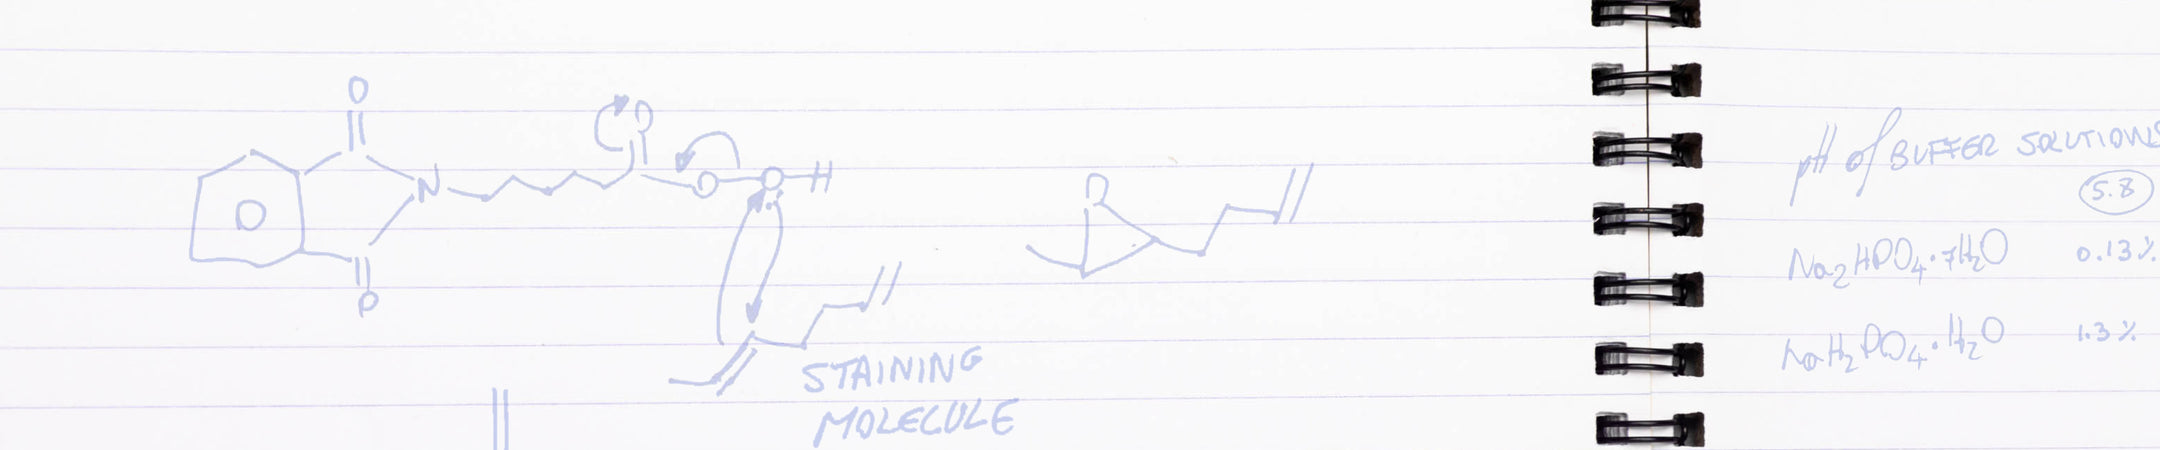 O
O
N
O
O
H
O
O
STAINING
MOLECULE
pH of BUFFER SOLUTIONS
5.8
Na2HPO4·7H2O 0.13%
NaH2PO4·H2O 1.3%